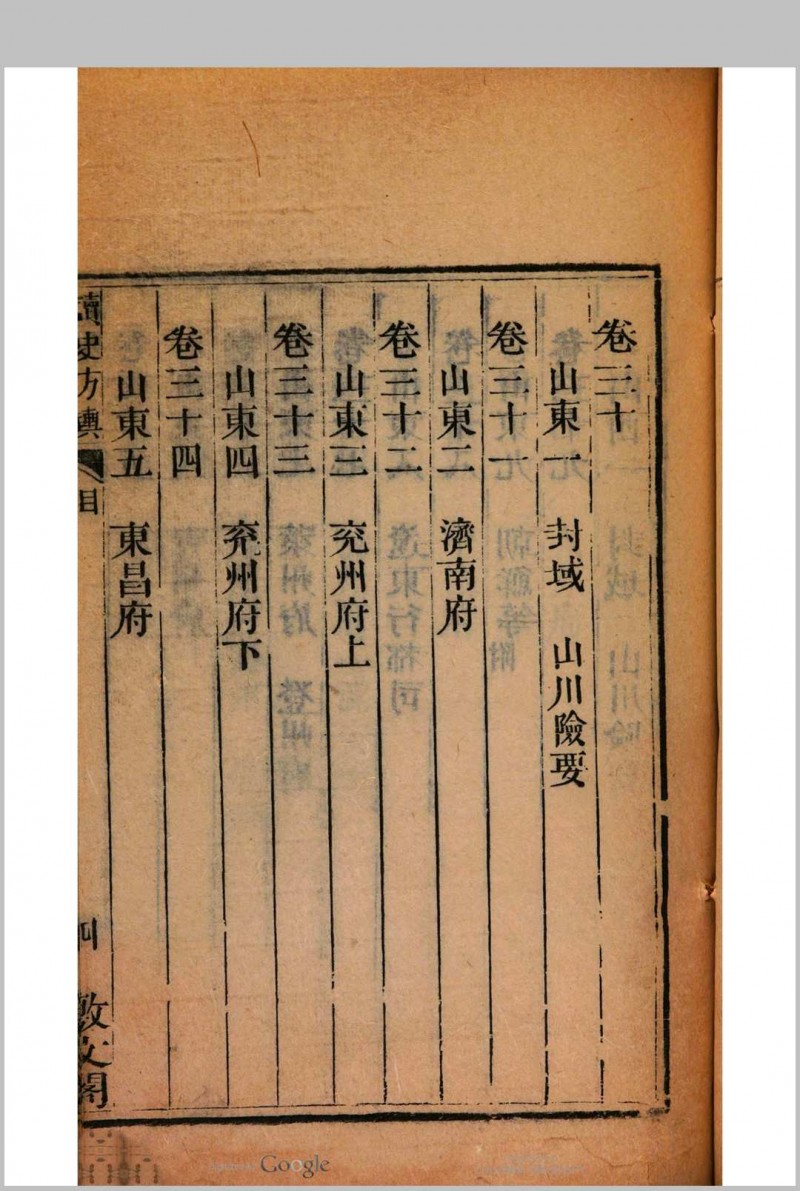 卷三十
山東一 封域 山川險要
卷三十一
山東二 濟南府
卷三十二
山東三 兖州府上
卷三十三
山東四 兖州府下
卷三十四
山東五 東昌府
讀史方輿 目 四 敷文閣
Google